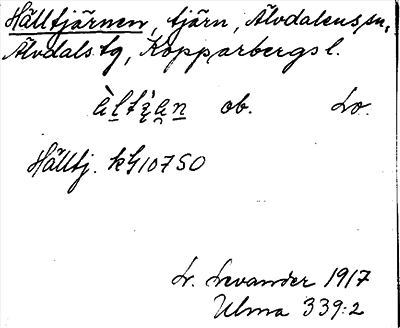 Hälltjärnen, tjärn, Älvdalens sn,
Älvdals tg, Kopparbergs l.
ob. Lo.
Hälltj. kg 10750
L. Levander 1917
Ulma 339:2